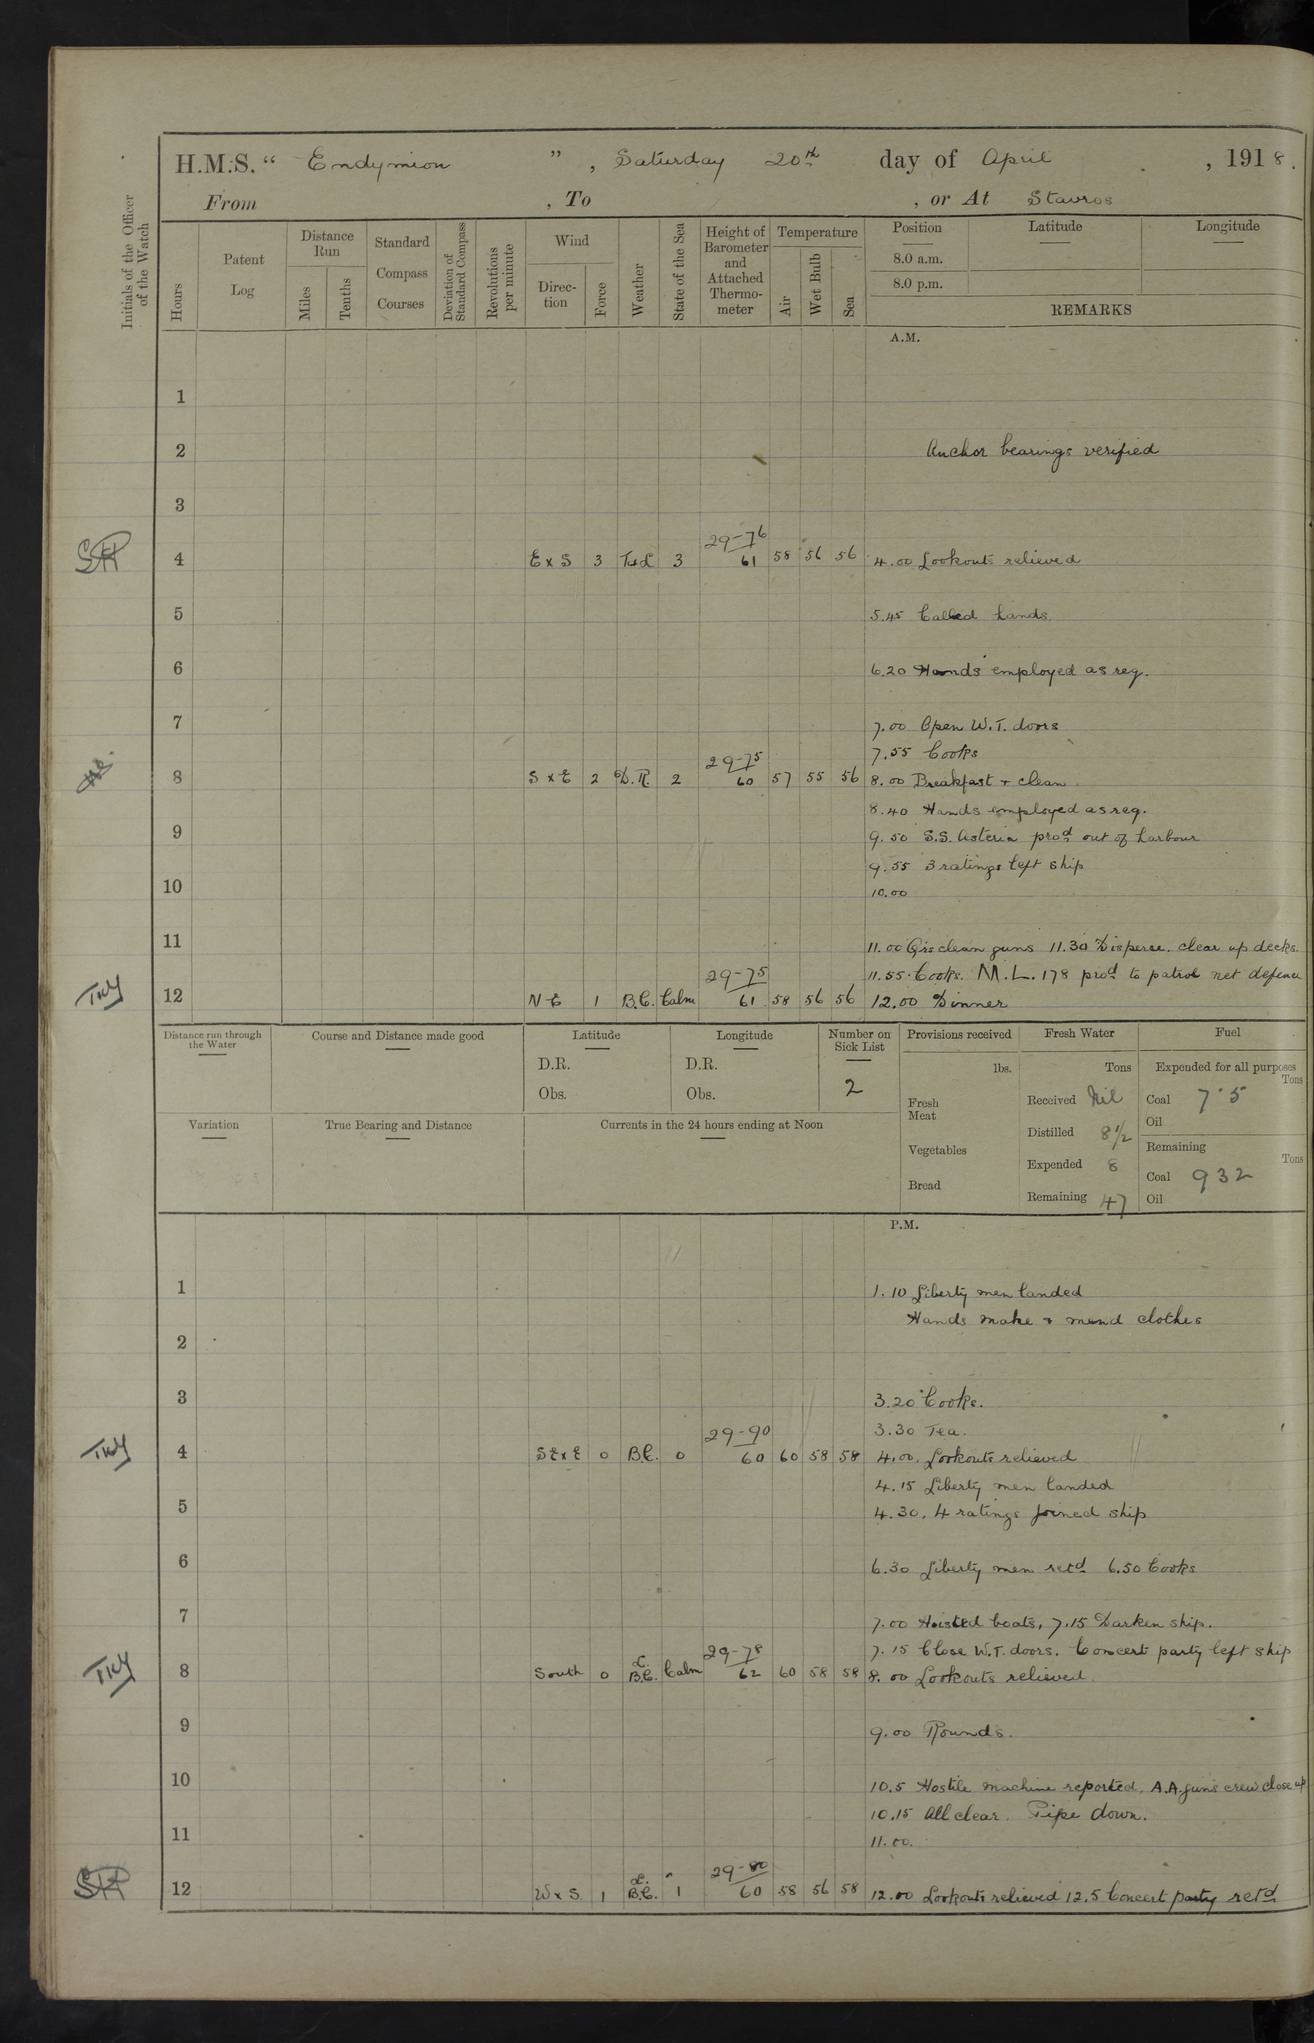 H.M.S. “ Endymion ” , Saturday 20th day of April , 1918.
From , To , or At Stavros
Initials of the Officer of the Watch
Hours
Patent Log
Distance Run
Miles
Tenths
Standard Compass Courses
Deviation of Standard Compass
Revolutions per minute
Wind
Direction
Force
Weather
State of the Sea
Height of Barometer and Attached Thermometer
Temperature
Air
Wet Bulb
Sea
Position
Latitude
Longitude
8.0 a.m.
8.0 p.m.
REMARKS
A.M.
1
2 Anchor bearings verified
3
29-76
4 E x S 3 3 61 58 56 56 4.00 Lookouts relieved
5 5.45 Called hands
6 6.20 Hands employed as req.
7 7.00 Open W.T. doors
7.55 Cooks
29-75
8 S x E 2 D.R. 2 60 57 55 56 8.00 Breakfast + clean
8.40 Hands employed as req.
9 9.50 S.S. Asteria prod out of harbour
9.55 3 ratings left ship
10 10.00
11 11.00 Qrs clean guns 11.30 Disperse. clear up decks.
29-75 11.55. Cooks. M.L. 178 prod to patrol net defence
12 N E 1 B.C. Calm 61 58 56 56 12.00 Dinner
Distance run through the Water
Course and Distance made good
Latitude
D.R.
Obs.
Longitude
D.R.
Obs.
Number on Sick List
2
Provisions received
lbs.
Fresh Meat
Vegetables
Bread
Fresh Water
Tons
Received Nil
Distilled 8 1/2
Expended 8
Remaining 47
Fuel
Expended for all purposes
Tons
Coal 7.5
Oil
Remaining
Tons
Coal 932
Oil
Variation
True Bearing and Distance
Currents in the 24 hours ending at Noon
P.M.
1 1.10 Liberty men landed
Hands make + mend clothes
2
3 3.20 Cooks.
29-90 3.30 Tea.
4 SE x E 0 B.C. 0 60 60 58 58 4.00. Lookouts relieved
4.15 Liberty men landed
5 4.30. 4 ratings joined ship
6 6.30 Liberty men retd 6.50 Cooks
7 7.00 Hoisted boats, 7.15 Darken ship.
29-78 7.15 Close W.T. doors. Concert party left ship
8 South 0 B.C. Calm 62 60 58 58 8.00 Lookouts relieved
9 9.00 Rounds.
10 10.5 Hostile machine reported. A.A. guns crew close up
10.15 All clear. Pipe down.
11 11.00.
29-80
12 W x S. 1 B.C. 1 60 58 56 58 12.00 Lookouts relieved 12.5 Concert party retd